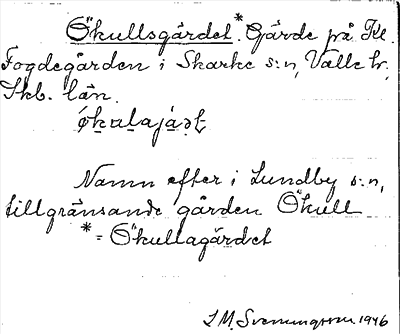 Ökullsgärdet.* Gärde på Kl.
Fogdegården i Skarke s:n, Valle hr,
Skb. län.
Namn efter i Lundby s:n,
tillgränsande gården Ökull
* = Ökullagärdet
S.M. Svenungsson 1946